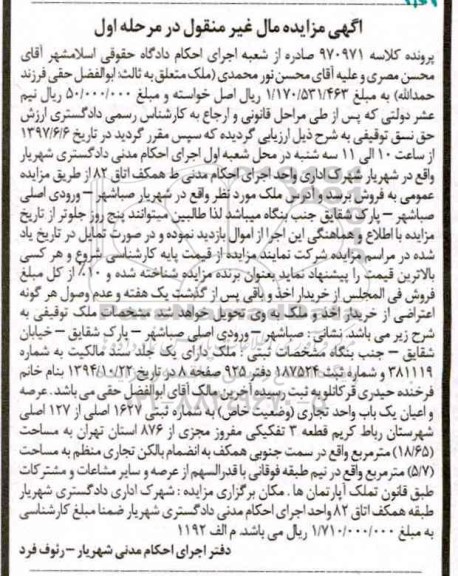 آگهی مزایده مال غیر منقول در مرحله اول
پرونده کلاسه ۹۷۰۹۷۱ صادره از شعبه اجرای احکام دادگاه حقوقی اسلامشهر آقای
محسن مصری و علیه آقای محسن نور محمدی (ملک متعلق به ثالث: ابوالفضل حقی فرزند
حمدالله) به مبلغ ۱/۱۷۰/۵۳۱/۴۶۳ ریال اصل خواسته و مبلغ ۵۰/۰۰۰/۰۰۰ ریال نیم
عشر دولتی که پس از طی مراحل قانونی و ارجاع به کارشناس رسمی دادگستری ارزش
حق نسق توقیفی به شرح ذیل ارزیابی گردیده که سپس مقرر گردید در تاریخ ۱۳۹۷/۶/۶
از ساعت ۱۰ الی ۱۱ سه شنبه در محل شعبه اول اجرای احکام مدنی دادگستری شهریار
واقع در شهریار شهرک اداری واحد اجرای احکام مدنی ط همکف اتاق ۸۲ از طریق مزایده
عمومی به فروش برسد و آدرس ملک مورد نظر واقع در شهریار صباشهر – ورودی اصلی
صباشهر – پارک شقایق جنب بنگاه میباشد لذا طالبین میتوانند پنج روز جلوتر از تاریخ
مزایده با اطلاع و هماهنگی این اجرا از اموال بازدید نموده و در صورت تمایل در تاریخ یاد
شده در مراسم مزایده شرکت نمایند مزایده از قیمت پایه کارشناسی شروع و هر کسی
بالاترین قیمت را پیشنهاد نماید بعنوان برنده مزایده شناخته شده و ۱۰٪ از کل مبلغ
فروش فی المجلس از خریدار اخذ و باقی پس از گذشت یک هفته و عدم وصول هر گونه
اعتراضی از خریدار اخذ و ملک به وی تحویل خواهد شد. مشخصات ملک توقیفی به
شرح زیر می باشد. نشانی: صباشهر – ورودی اصلی صباشهر – پارک شقایق – خیابان
شقایق – جنب بنگاه مشخصات ثبتی: ملک دارای یک جلد سند مالکیت به شماره
۳۸۱۱۱۹ و شماره ثبت ۱۸۷۵۲۴ دفتر ۹۲۵ صفحه ۸ در تاریخ ۱۳۹۴/۱۰/۲۳ بنام خانم
فرخنده حیدری قرکانلو به ثبت رسیده آخرین مالک آقای ابوالفضل حقی می باشد. عرصه
و اعیان یک باب واحد تجاری (وضعیت خاص) به شماره ثبتی ۱۶۲۷ اصلی از ۱۲۷ اصلی
شهرستان رباط کریم قطعه ۳ تفکیکی مفروز مجزی از ۸۷۶ استان تهران به مساحت
(۱۸/۶۵) مترمربع واقع در سمت جنوبی همکف به انضمام بالکن تجاری منظم به مساحت
(۵/۷) مترمربع واقع در نیم طبقه فوقانی با قدرالسهم از عرصه و سایر مشاعات و مشترکات
طبق قانون تملک آپارتمان ها. مکان برگزاری مزایده: شهرک اداری دادگستری شهریار
طبقه همکف اتاق ۸۲ واحد اجرای احکام مدنی دادگستری شهریار ضمنا مبلغ کارشناسی
به مبلغ ۱/۷۱۰/۰۰۰/۰۰۰ ریال می باشد. م الف ۱۱۹۲
دفتر اجرای احکام مدنی شهریار – رئوف فرد